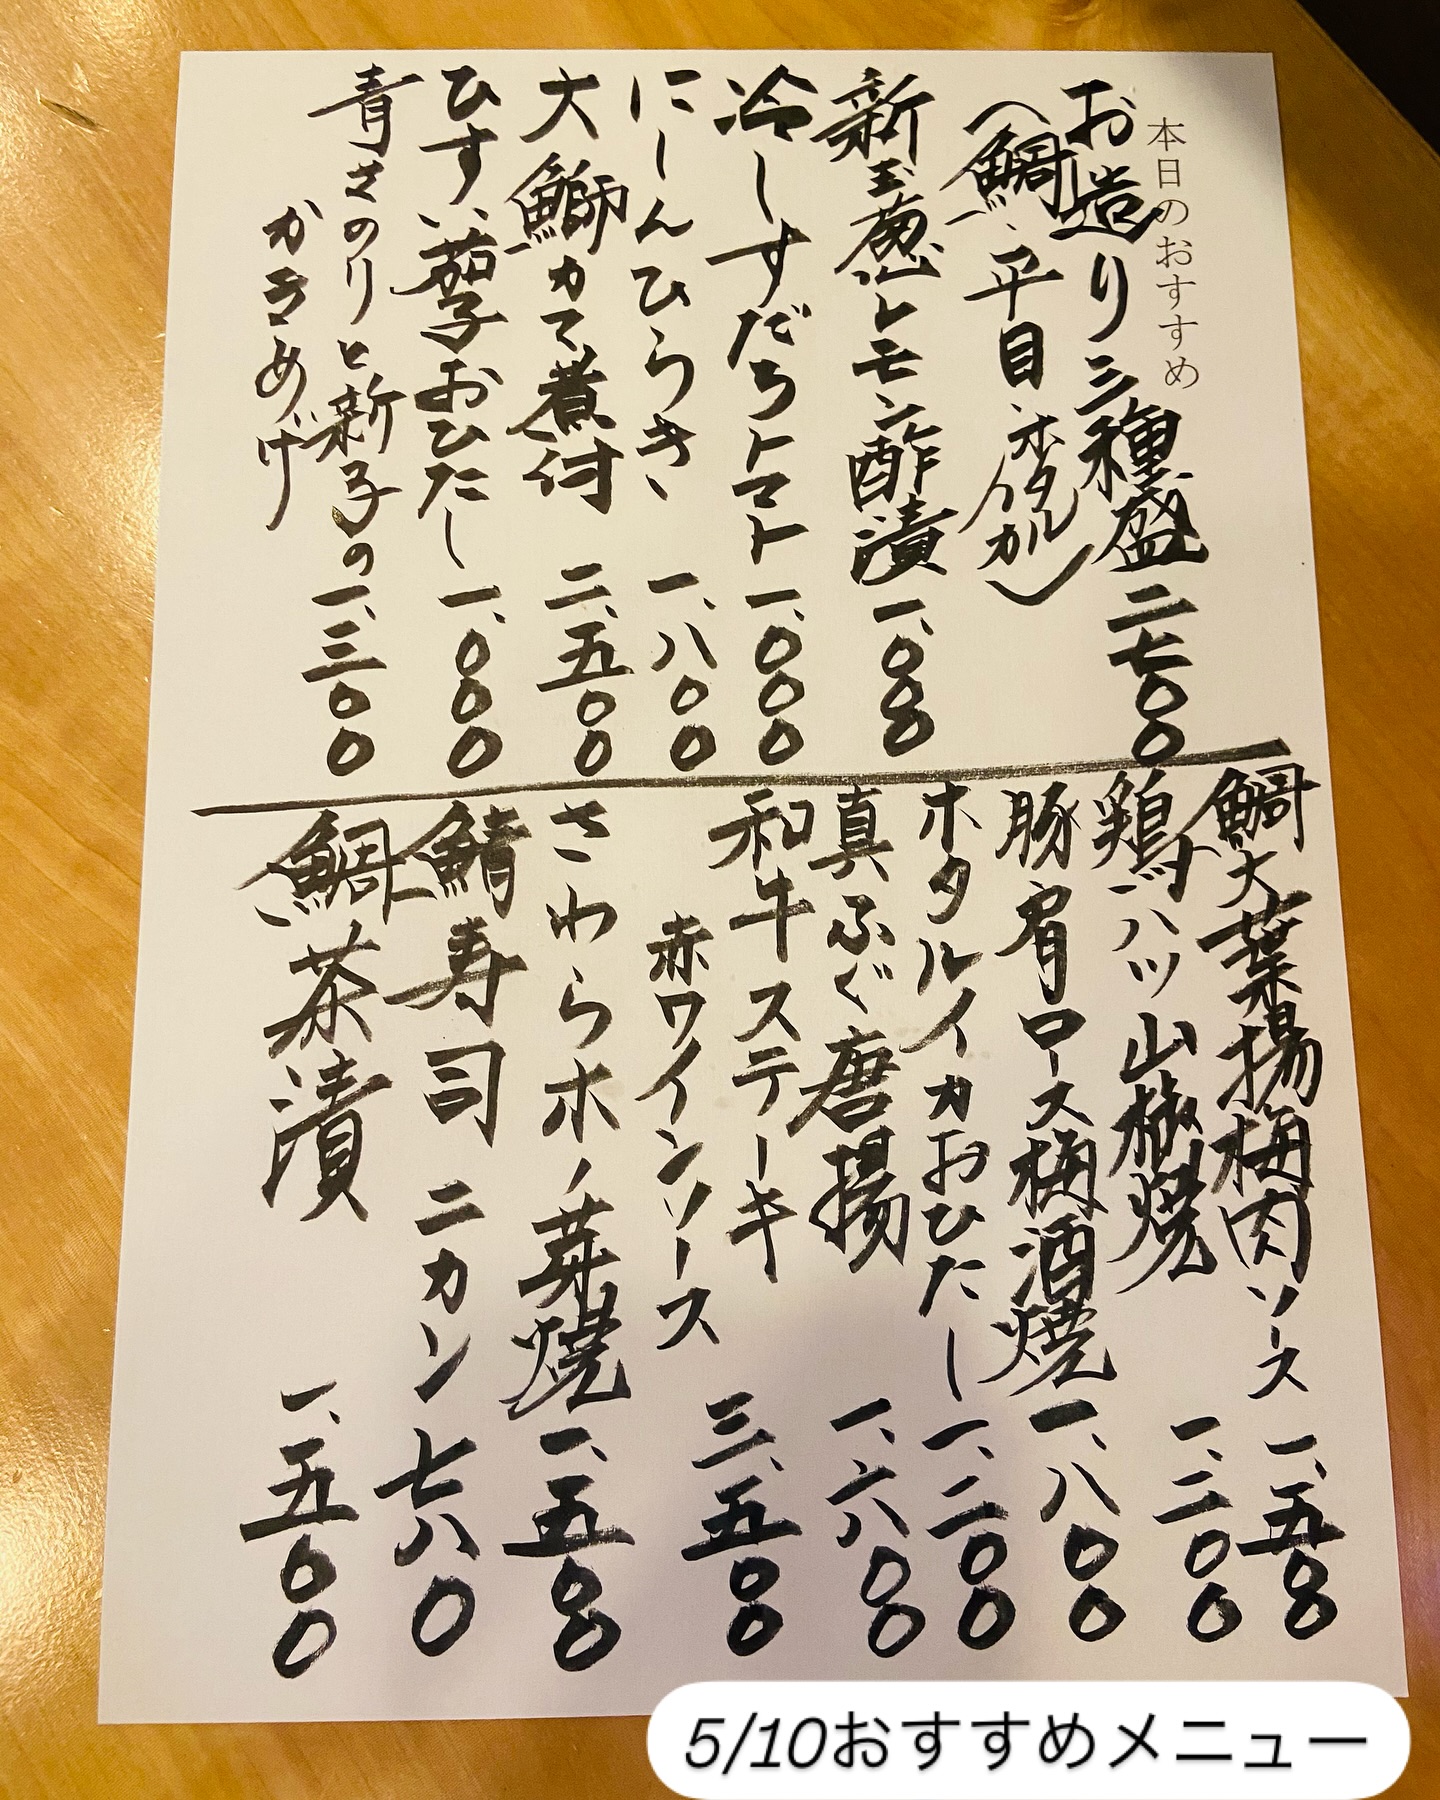 本日のおすすめ
お造り三種盛 二七〇〇
(鯛、平目、ホタルイカ)
新玉葱レモン酢漬 一、〇〇〇
冷しすだちトマト 一、〇〇〇
にしんひらき 一、八〇〇
大鰤かま煮付 二、五〇〇
ひすい茄子おひたし 一、〇〇〇
青さのりと新子の 一、三〇〇
かきあげ
鯛大葉揚梅肉ソース 一、五〇〇
鶏ハツ山椒焼 一、二〇〇
豚肩ロース梅酒焼 一、八〇〇
ホタルイカおひたし 一、二〇〇
真ふぐ唐揚 一、六八〇
和牛ステーキ 三、五〇〇
赤ワインソース
さわら木ノ芽焼 一、五〇〇
鯖寿司 二カン 七八〇
鯛茶漬 一、五〇〇
5/10おすすめメニュー